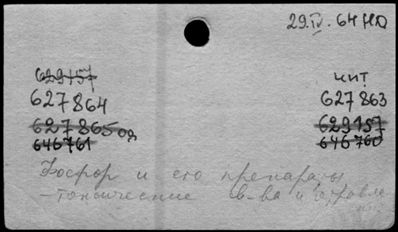 29.IV.64 НО
629157
627864
627865 од
646761
чит
627863
629157
646760
Фосфор и его препараты
-токсические в-ва и отравле